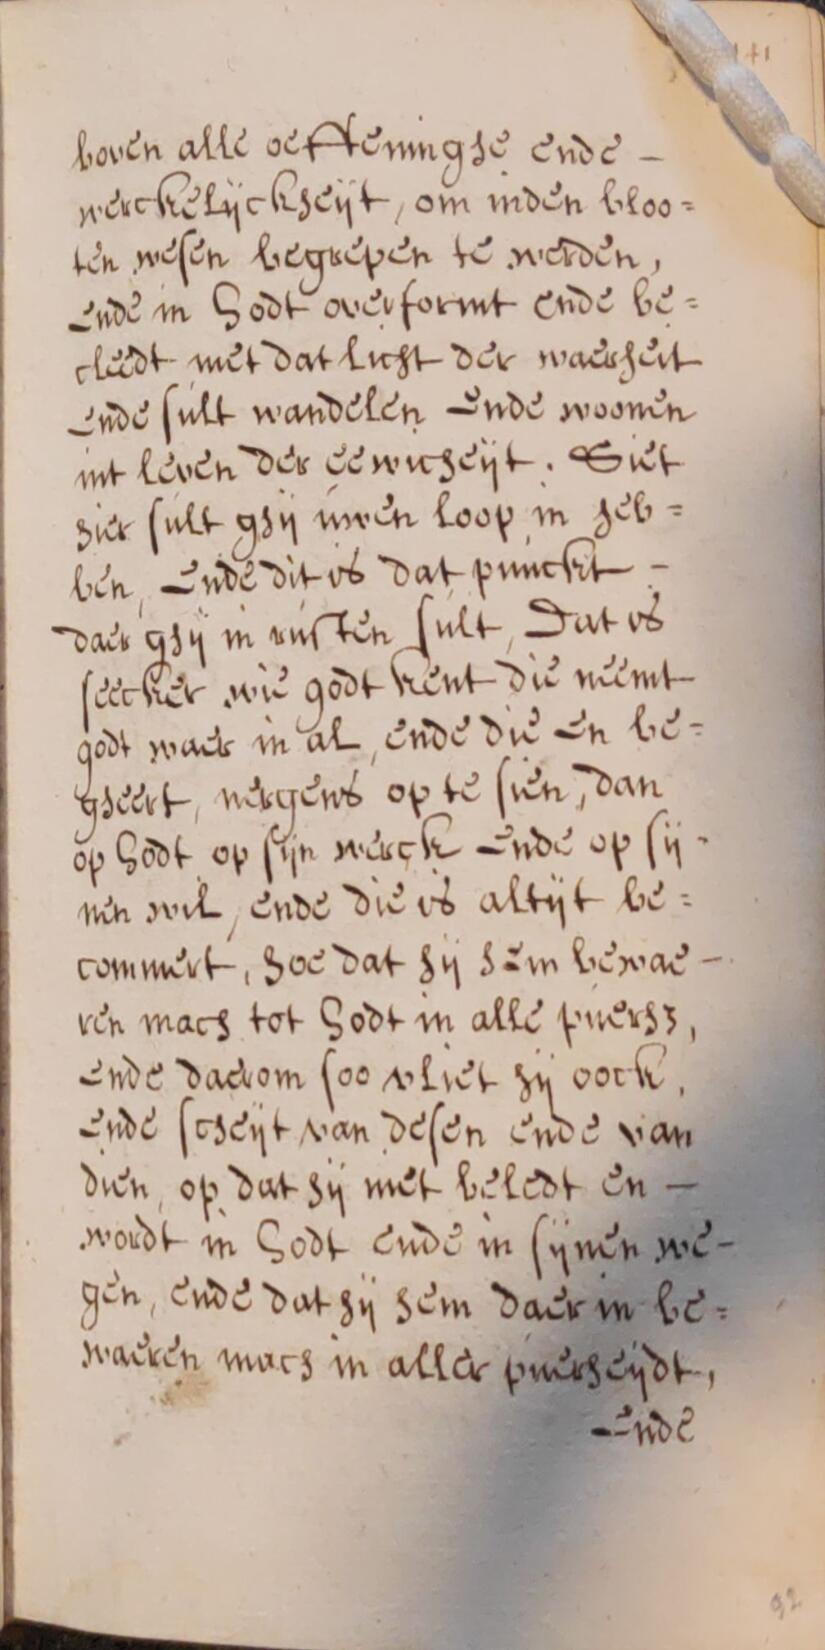 141
boven alle oeffeninghe ende –
werckelijckheijt, om inden bloo=
ten wesen begrepen te werden,
ende in Godt overformt ende be=
cleedt met dat licht der waerheit
ende sult wandelen ende woonen
int leven der eewicheijt. Siet
hier sult ghij uwen loop in heb=
ben, ende dit is dat punckt –
daer ghij in rusten sult, Dat is
seecker wie godt kent die neemt
godt waer in al, ende die en be=
gheert, nergens op te sien, dan
op Godt op sijn werck ende op sij-
nen wil, ende die is altijt be=
commert, hoe dat hij hem bewae–
ren mach tot Godt in alle puerh3,
ende daerom soo vliet hij oock,
ende scheijt van desen ende van
dien, op dat hij niet beledt en –
wordt in Godt ende in sijnen we–
gen, ende dat hij hem daer in be=
waeren mach in aller puerheijdt,
ende
92